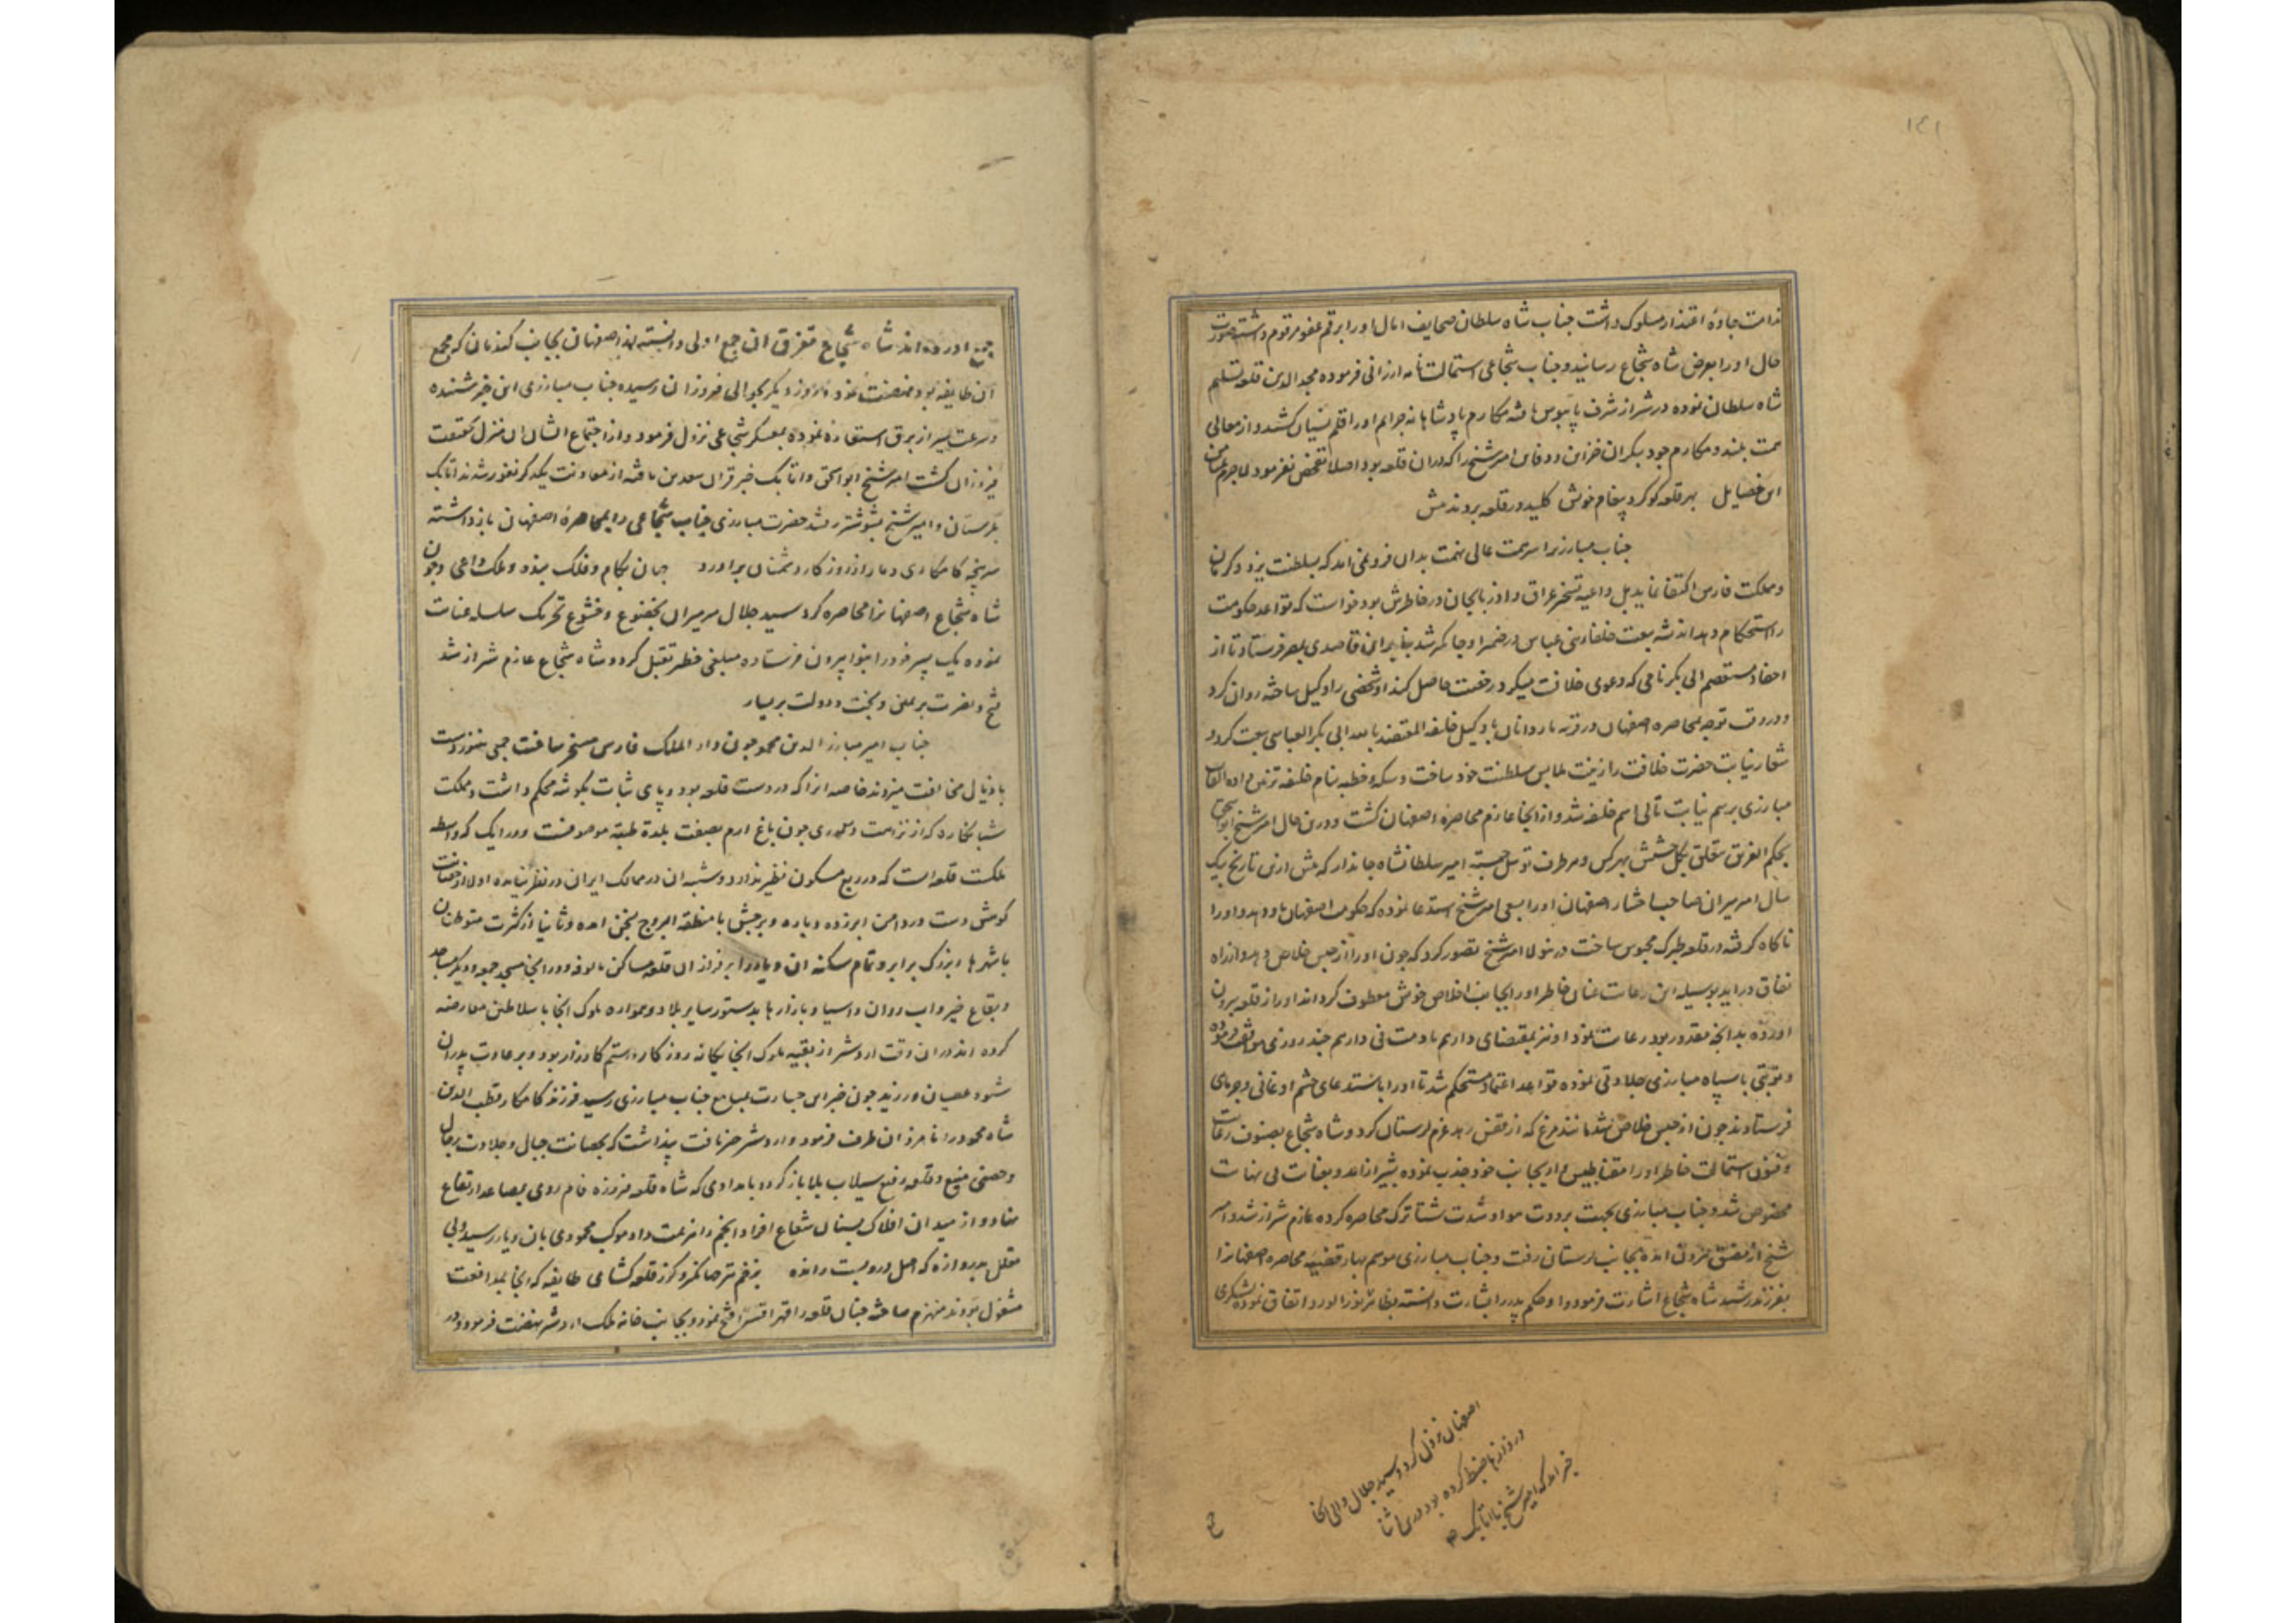 ۱۴۱
ندامت جادۀ اعتذار مسلوک داشت جناب شاه سلطان صحایف امال او را برقم عفو مرقوم داشته صورت
حال او را بعرض شاه شجاع رسانید و جناب شجاعی استمالت نامه ارزانی فرموده مجد الدین قلعه تسلیم
شاه سلطان نموده در شیراز شرف پایبوس یافته مکارم پادشاهانه جرایم او را قلم نسیان کشید و از معالی
همت بلند و مکارم جود بیکران خزاین و دفاین امیر شیخ را که در ان قلعه بود اصلا تفحص نفرمود لاجرم بمیامن
این خصایل بهر قلعه کو کرد پیغام خویش کلید در قلعه بردند پیش
جناب مبارزی را همت عالی نهمت بدان فرو نمی امد که بسلطنت یزد و کرمان
و مملکت فارس اکتفا نماید بل داعیه تسخیر عراق و اذربایجان در خاطرش بود خواست که قواعد حکومت
را استحکام دهد اندیشه بیعت خلفاء بنی عباس در ضمیر او جایگیر شد بنابر این قاصدی بمصر فرستاد تا از
احفاد مستعصم ابی بکر نامی که دعوی خلافت میکرد رخصت حاصل کند او شخصی را وکیل ساخته روان کرد
و در وقت توجه بمحاصره اصفهان در قریه ماروانان با وکیل خلیفه المعتضد بالله ابی بکر العباسی بیعت کرد و
شعار نیابت حضرت خلافت را زینت ملابس سلطنت خود ساخت و سکه و خطبه بنام خلیفه تزیین داده القاب
مبارزی برسم نیابت تالی اسم خلیفه شد و از انجا عازم محاصره اصفهان گشت و درین حال امیر شیخ ابو اسحق
بحکم الغریق یتعلق بکل حشیش بهر کس و هر طرف توسل جسته امیر سلطانشاه جاندار که پیش ازین تاریخ بیک
سال امیر میران صاحب اختیار اصفهان او را بسعی امیر شیخ استدعا نموده که حکومت اصفهان باو دهد و او را
ناکاه گرفته در قلعه طبرک محبوس ساخت درینولا امیر شیخ تصور کرد که چون او را از حبس خلاص دهد و از راه
نفاق دراید بوسیله این رعایت عنان خاطر او را بجانب اخلاص خویش معطوف گرداند او را از قلعه بیرون
اورده بدانچه مقدور بود رعایت نمود او نیز بمقتضای دارهم ما دمت فی دارهم چند روزی موافقت نموده
و نوبتی با سپاه مبارزی جلادتی نموده قواعد اعتماد مستحکم شد تا او را باستدعای حشم اوغانی و جرمایی
فرستادند چون از حبس خلاص شد مانند مرغ که از قفس رهد عزم لرستان کرد و شاه شجاع بصنوف رعایت
و فنون استمالت خاطر او را مقناطیس وار بجانب خود جذب نموده بشیراز امد و بعنایت بی نهایت
مخصوص شد و جناب مبارزی بجهت برودت هوا و شدت شتا ترک محاصره کرده عازم شیراز شد و امیر
شیخ از مضیق بیرون امده بجانب لرستان رفت و جناب مبارزی موسم بهار قضیه محاصره اصفهانرا
بفرزند رشید شاه شجاع اشارت فرمود و او حکم پدر را بشارت دانسته بظاهر اتفاق نموده لشکری
اصفهان نزول کرد و سید جلال والی انجا
دروازها ضبط کرده بود درین اثنا
خبر امد که امیر شیخ با اتابک
جمع
جمع اورده اند شاه شجاع تفرق ان جمع اولی دانسته از اصفهان بجانب کندمان که مجمع
ان طایفه بود نهضت نمود و روز دیگر بحوالی فیروزان رسیده جناب مبارزی این خبر شنیده
و سرعت سیر از برق استعاره نموده بمعسکر شجاعی نزول فرمود و از اجتماع ایشان ان منزل بحقیقت
فیروزان گشت امیر شیخ ابو اسحق و اتابک خبر قران سعدین یافته از معاونت یکدیگر نفور شدند اتابک
بلرستان و امیر شیخ بشوشتر رفتند حضرت مبارزی جناب شجاعی را بمحاصرۀ اصفهان بازداشته
سرپنجه کامکاری دمار از روزگار دشمنان براورد جهان بکام و فلک بنده و ملک داعی و چون
شاه شجاع اصفهانرا محاصره کرد سید جلال میر میران بخضوع و خشوع تحریک سلسله عنایت
نموده یک پسر خود را بنوا بیرون فرستاده مبلغی خطیر تقبل کرد و شاه شجاع عازم شیراز شد
فتح و نصرت بر یمین و بخت و دولت بر یسار
جناب امیر مبارز الدین محمد چون دار الملک فارس مسخر ساخت جمعی هنوز دست
باذیال مخالفت میزدند خاصه انرا که در دست قلعه بود و پای ثبات بگوشه محکم داشت و مملکت
شبانکاره که از نزاهت و طراوت چون باغ ارم بصفت بلدة طیبة موصوفست و دران که واسطه
ملکست قلعه است که در ربع مسکون نظیر ندارد و شبه ان در ممالک ایران در نظر نیامده اولا از حصانت
کوهش دست در دامن ابر زده و باره و برجش با منطقه البروج بجنگ امده و ثانیا از کثرت متوطنان
با شهرهای بزرگ برابر و تمام سکنه ان دیار را بر فراز ان قلعه مساکن مالوفه و در انجا مسجد جمعه و دیگر مساجد
و بقاع خیر و اب روان و اسیا و بازارها بدستور سایر بلاد و همواره ملوک انجا با سلاطین معارضه
کرده اند در ان وقت اردشیر از بقیه ملوک انجا یگانه روزگار و رستم کارزار بود و بر عادت پدران
شیوه عصیان ورزید چون خبر این جسارت بمسامع جناب مبارزی رسید فرزند کامکار قطب الدین
شاه محمود را نامزد ان طرف فرمود و اردشیر خبر یافت پنداشت که بحصانت جبال و جلادت رجال
و حصنی منیع و قلعه رفیع سیلاب بلا باز گردد بامدادی که شاه قلعه فیروزه فام روی بمصاعد ارتفاع
نهاد و از میدان افلاک بسنان شعاع افراد انجم را هزیمت داد موکب محمودی بان دیار رسید ولی
مقلل بدروازه که اصل دروبست رانده بزخم تیر حصانگیر و گرز قلعه کشای طایفه که انجا بمدافعت
مشغول بودند منهزم ساخته چنان قلعه را قهرا قسرا فتح نمود و بجانب خانه ملک اردشیر نهضت فرمود و در